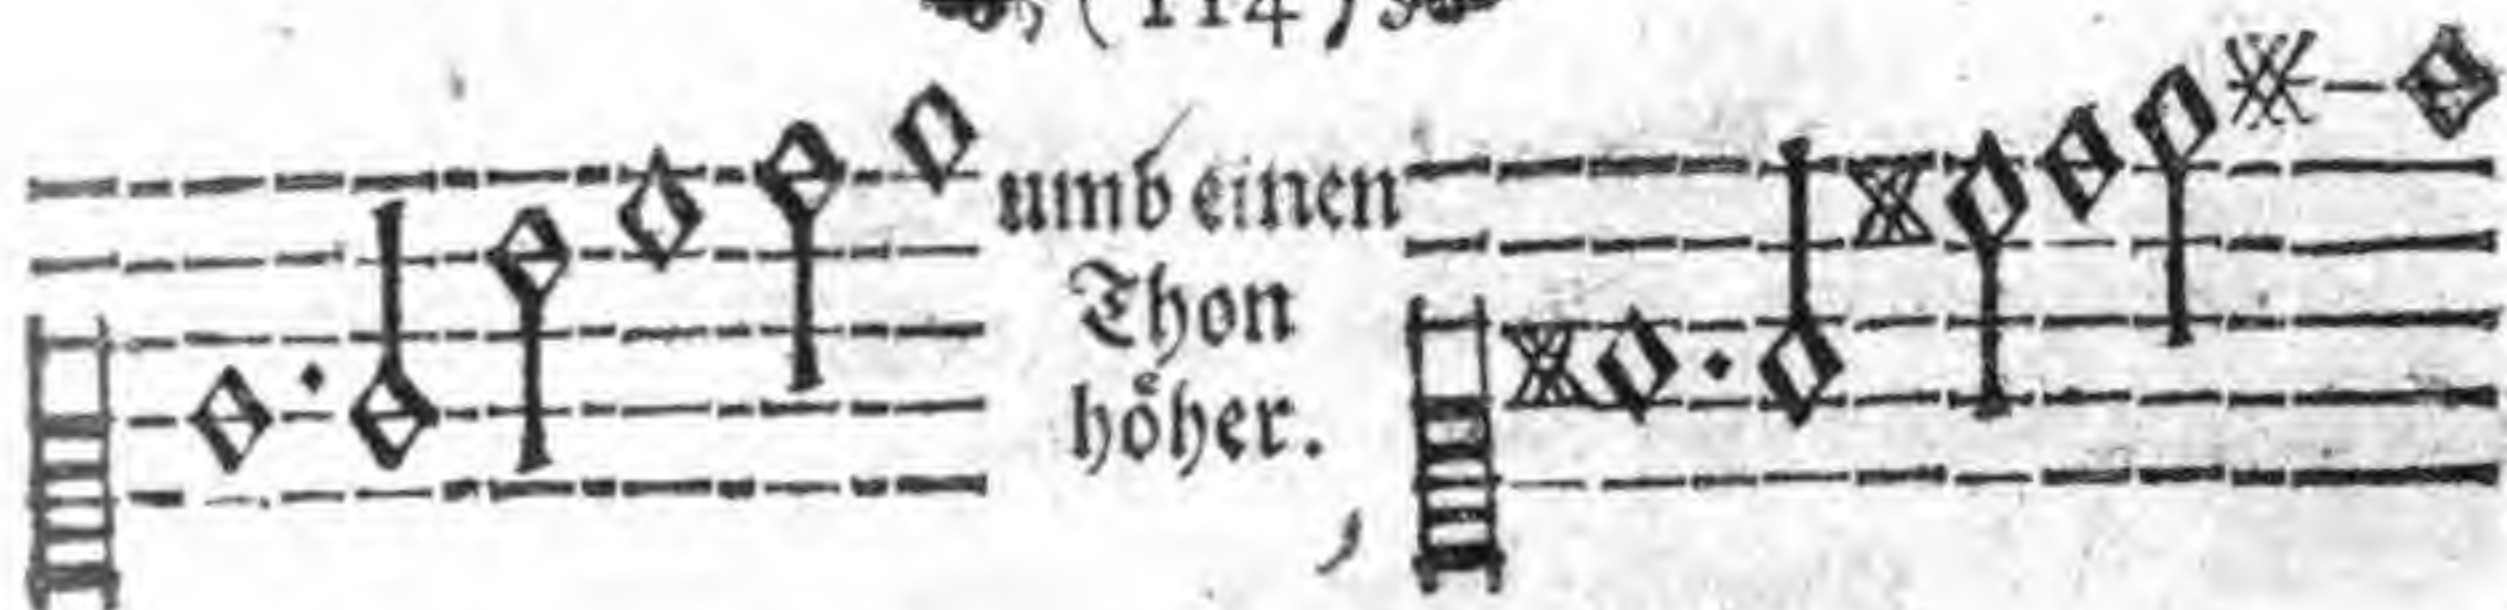 ( 114 )
umb einen
Thon
hoͤher.